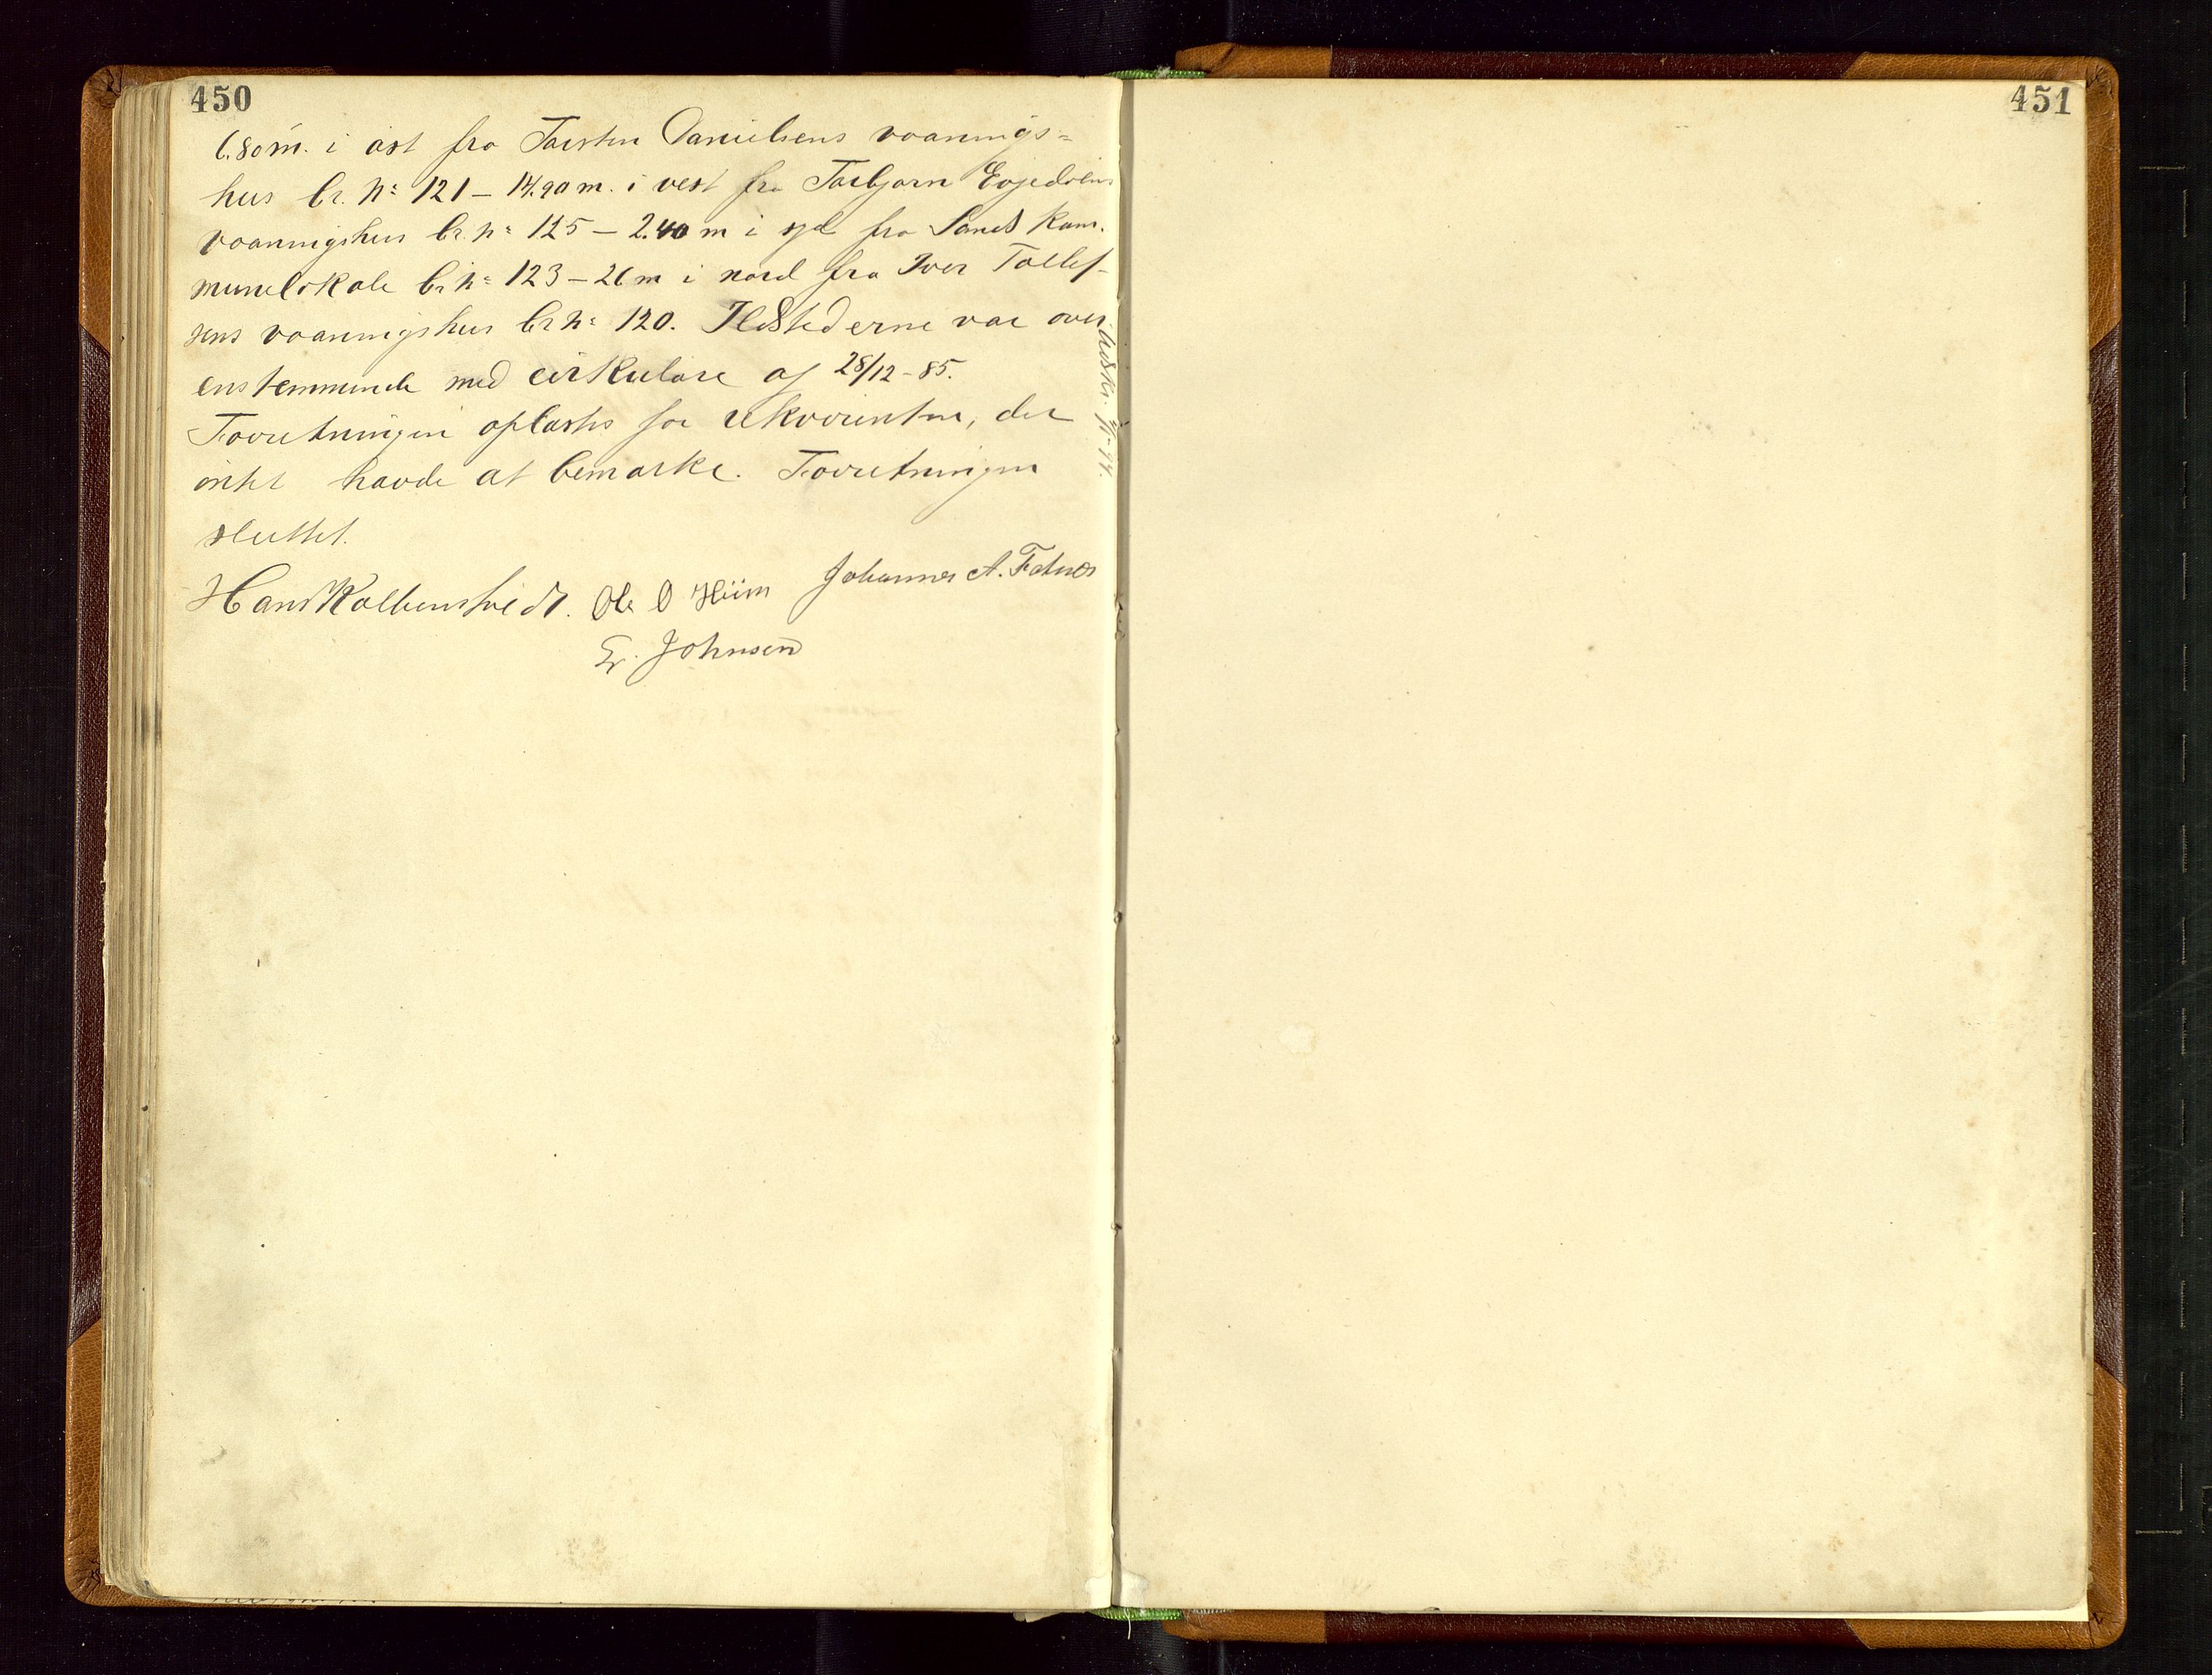 450
6.80 m. i øst fra Torsten Danielsens vaanings=
hus br. № 121 – 14.90 m. i vest fra Torbjørn
vaaningshus br. № 125 – 2.40 m i syd fra Sands Kom-
munelokale br № 123 – 26 m i nord fra Iver Tollef-
sens vaaningshus br № 120. Ildstederne var over-
enstemmende med cirkulære af 28/12-85.
Forretningen oplæstes for rekvirenten, der
intet havde at bemærke. Forretningen
sluttet.
Hans Kolbenstvedt. Ole O Hiim Johannes A. Fatnes
E. Johnsen
Udskr.
451